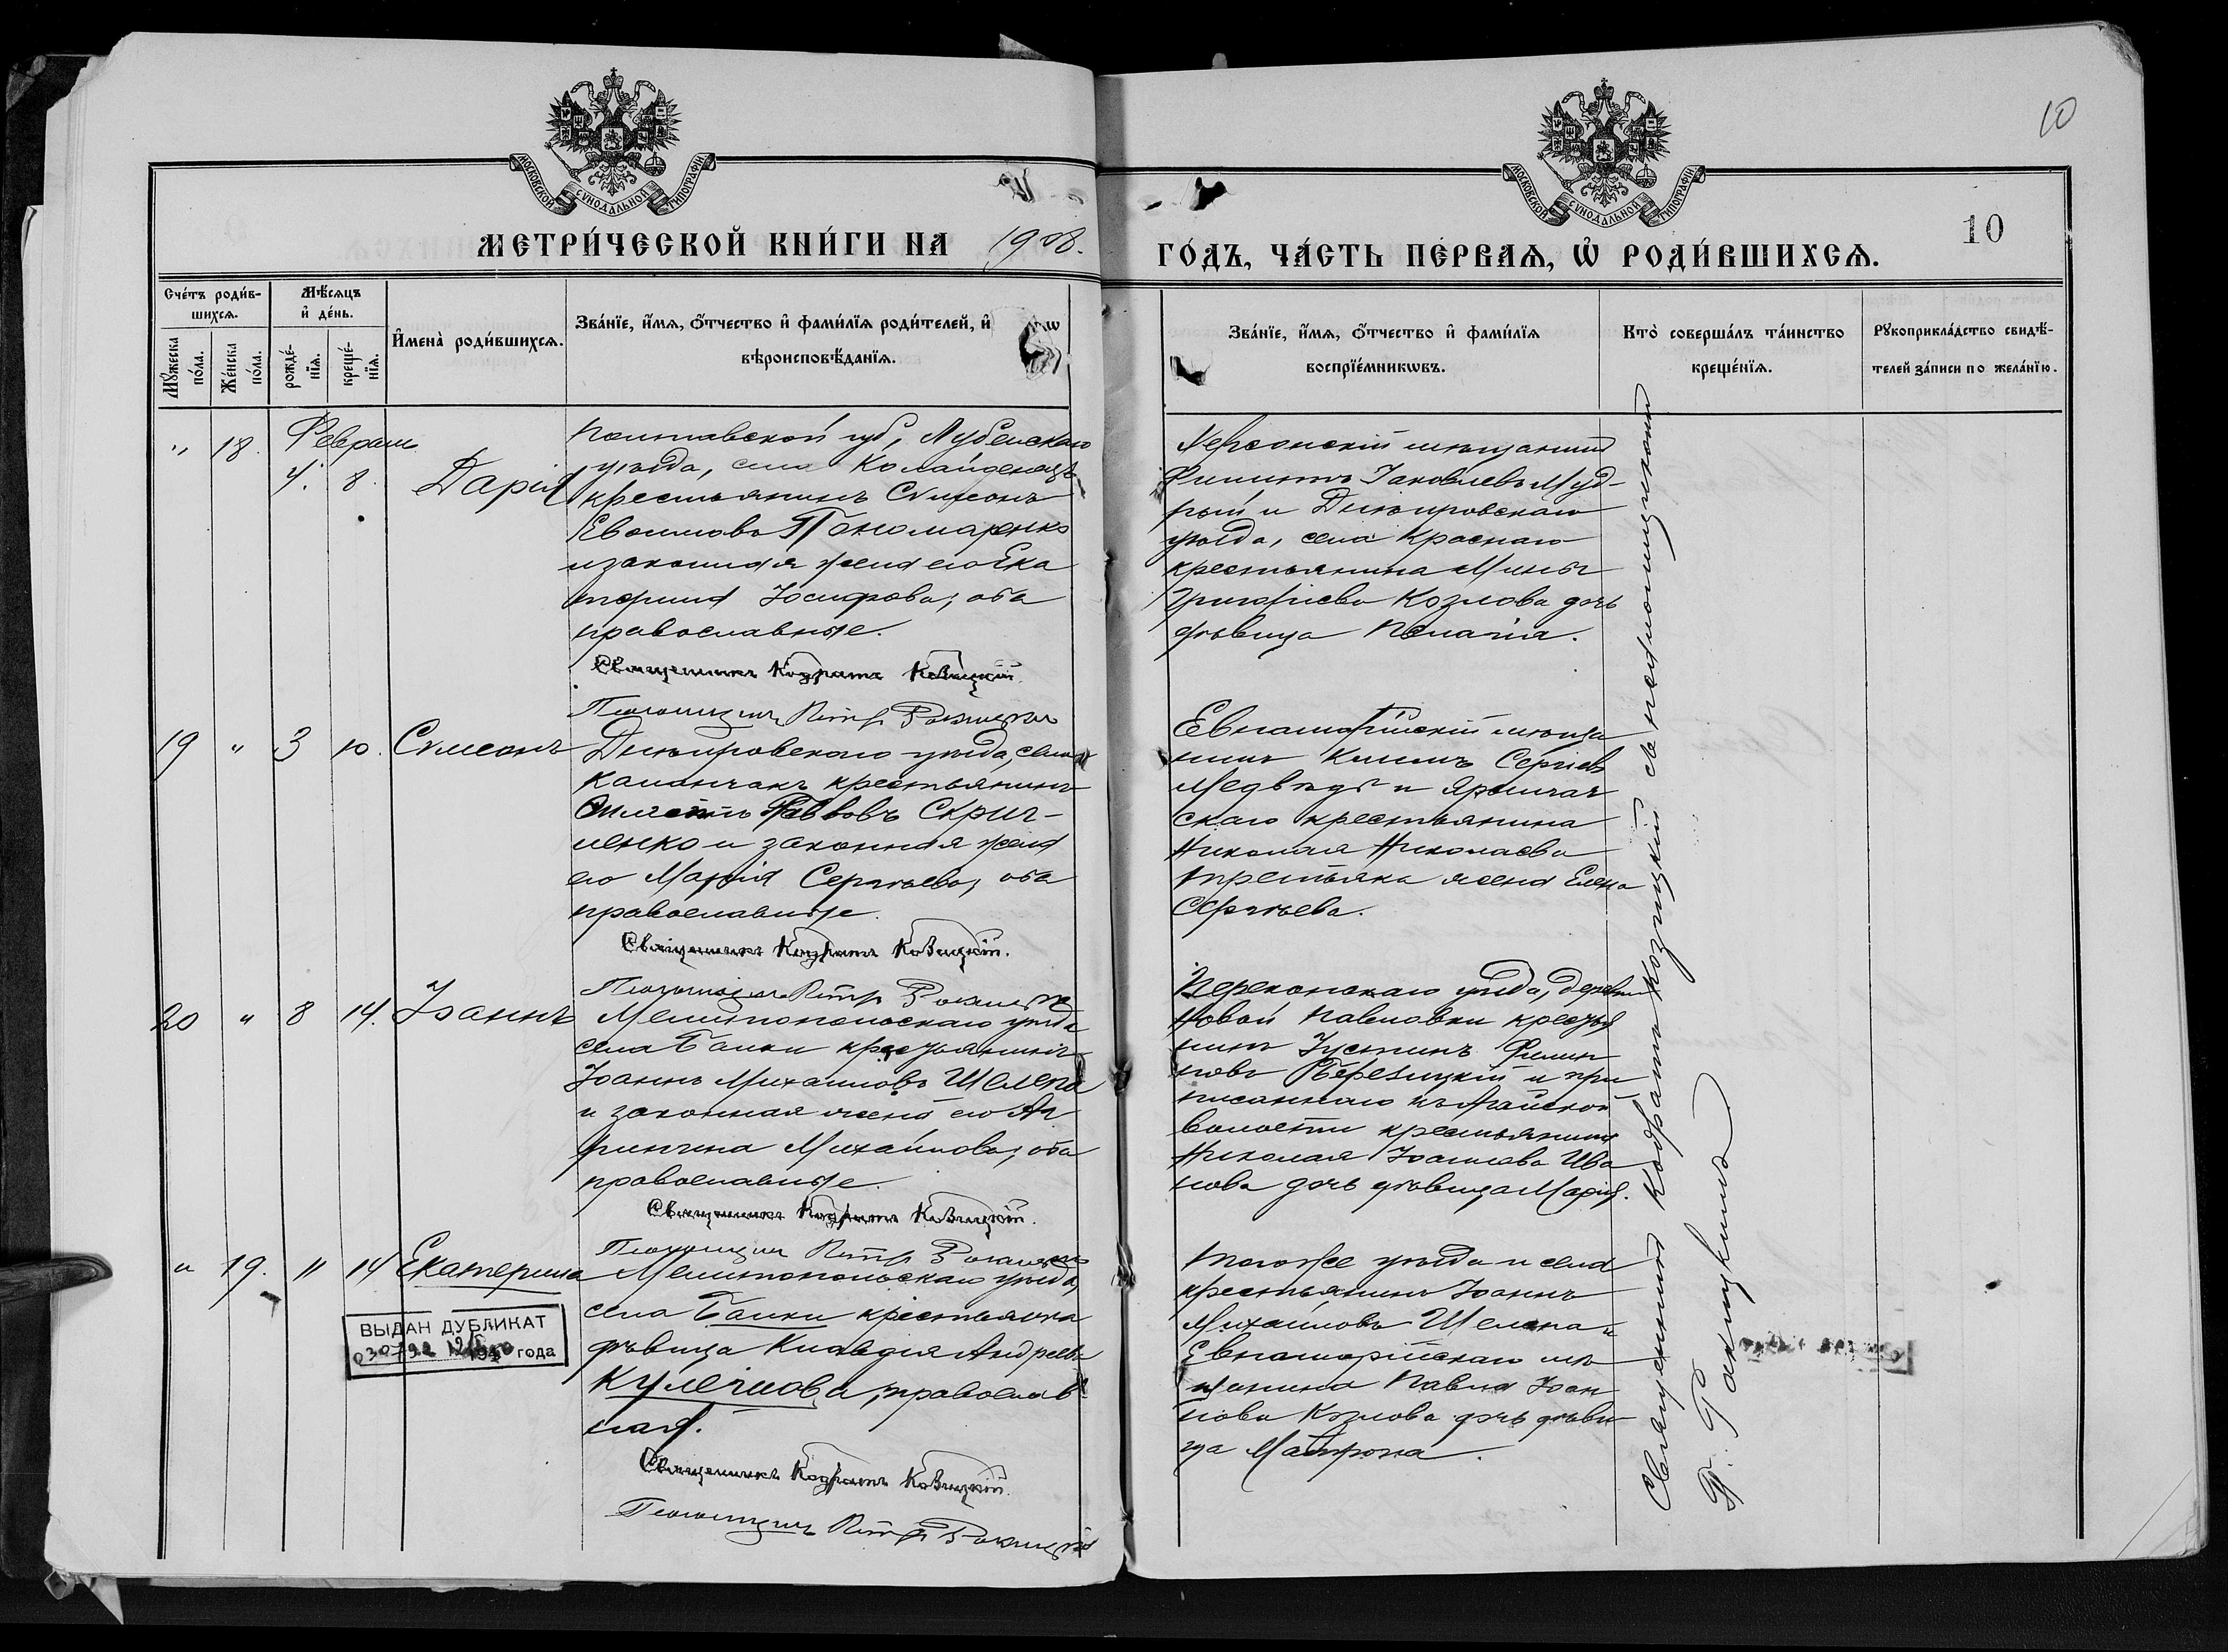 10
МОСКОВСКОЙ СѴНОДАЛЬНОЙ ТИПОГРАФІИ
МОСКОВСКОЙ СѴНОДАЛЬНОЙ ТИПОГРАФІИ
МЕТРИ́ЧЕСКОЙ КНИ́ГИ НА 1908.
ГО́ДЪ, ЧА́СТЬ ПЕ́РВАѦ, Ѡ҆ РОДИ́ВШИХСѦ.
10
Сче́тъ роди́в-
шихсѧ.
Мꙋ́жеска по́ла.
Же́нска по́ла.
Мѣ́сѧцъ
и҆ де́нь.
рожде́-
нїѧ.
креще́-
нїѧ.
И҆мена̀ роди́вшихсѧ.
Зва́нїе, и҆́мѧ, ѻ҆́тчество и҆ фами́лїѧ роди́телей, и҆
вѣроисповѣ́данїѧ.
Зва́нїе, и҆́мѧ, ѻ҆́тчество и҆ фами́лїѧ
воспрїе́мникѡвъ.
Кто̀ соверша́лъ та́инство
креще́нїѧ.
Рꙋкоприкла́дство свидѣ́-
телей за́писи по жела́нїю.
" 18. Февраль
4. 8. Дарія
Полтавской губ, Лубенскаго
уѣзда, села Колайденецъ
крестьянинъ Сѵмеонъ
Евѳимовъ Пономаренко
и законная жена его Ека
терина Іосифова; оба
православные.
Священникъ Кодратъ Козицкій.
Псаломщикъ Петръ
Херсонскій мѣщанинъ
Филиппъ Іаковлевъ Муд-
рый и Днѣпровскаго
уѣзда, села Краснаго
крестьянина Мины
Григоріева Козлова дочь
дѣвица Пелагія.
19 " 3 10. Сѵмеонъ
Днѣпровскаго уѣзда, села
Каланчакъ крестьянинъ
Савовъ Скрип-
ченко и законная жена
его Марія Сергѣева, оба
православные.
Священникъ Кодратъ Козицкій.
Псаломщикъ Петръ
Евпаторійскій мѣща
нинъ Климъ Сергіевъ
Медвѣдь и
скаго крестьянина
Николая Николаева
Третьяка жена Елена
Сергѣева.
20 " 8 14. Іоаннъ
Мелитопольскаго уѣзда
села Балки крестьянинъ
Іоаннъ Михаиловъ Шелепа
и законная жена его Аг
рипина Михайлова; оба
православные.
Священникъ Кодратъ Козицкій.
Псаломщикъ Петръ
Перекопскаго уѣзда, деревни
Новой Павловки крестья
нинъ Іустинъ Филип
повъ Березицкій и при
писаннаго къ Агайской
волости крестьянина
Николая Іоаннова Ива
нова дочь дѣвица Марія.
" 19. 11 14 Екатерина
Мелитопольскаго уѣзда,
села Балки крестьянка
дѣвица Клавдія Андреева
Кулешова, православ
ная.
Священникъ Кодратъ Козицкій.
Псаломщикъ Петръ
ВЫДАН ДУБЛИКАТ
года
Того же уѣзда и села
крестьянинъ Іоаннъ
Михайловъ Шелепа и
Евпаторійскаго мѣ
щанина Павла Іоан
нова Козлова дочь дѣви
ца Матрона.
Священникъ Кодратъ Козицкій съ псаломщикомъ
П.